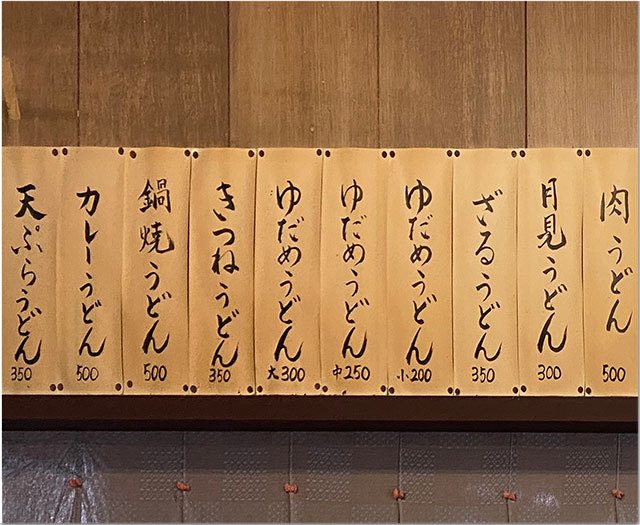 肉うどん
500
月見うどん
300
ざるうどん
350
ゆだめうどん
小200
ゆだめうどん
中250
ゆだめうどん
大300
きつねうどん
350
鍋焼うどん
500
カレーうどん
500
天ぷらうどん
350